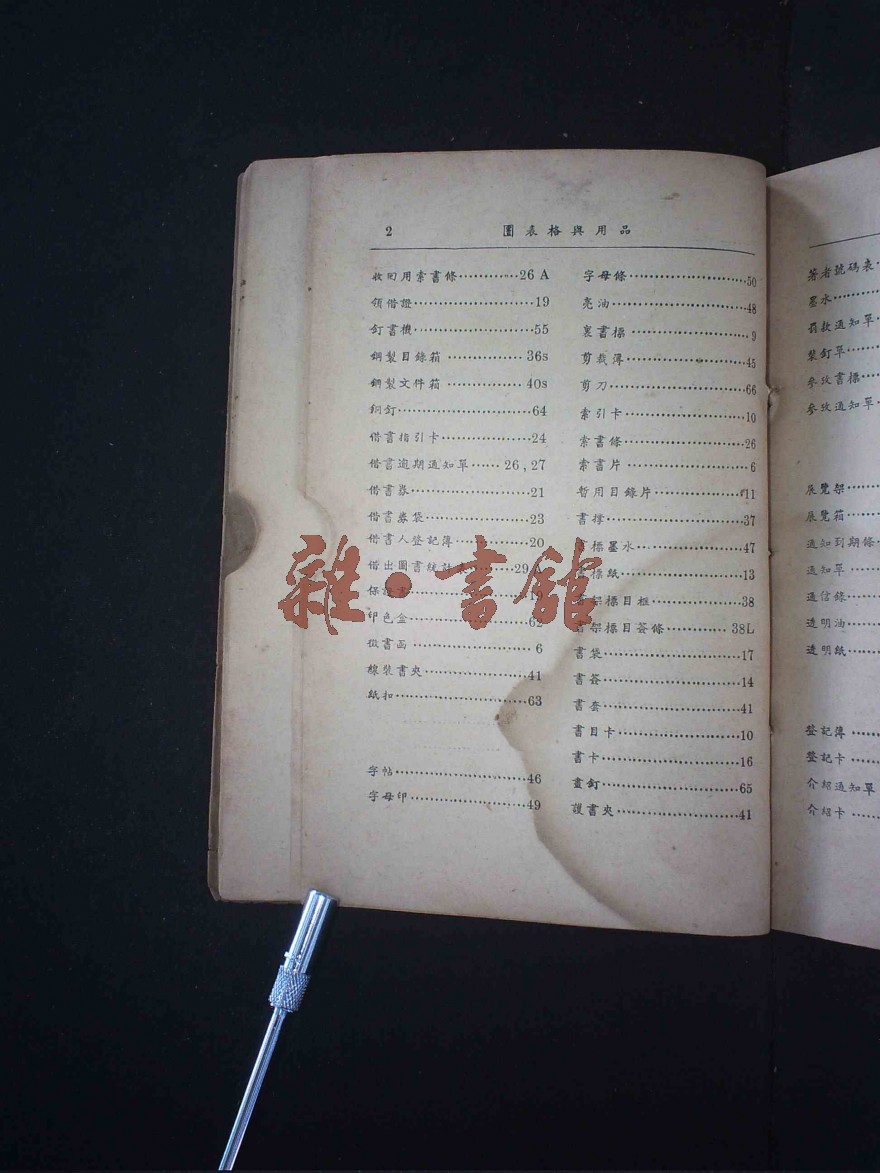 2 圕表格與用品
收回用索書條············26 A
領借證························19
釘書機························55
鋼製目錄箱 ·············· 36s
鋼製文件箱 ·············· 40s
銅釘··························64
借書指引卡·················24
借書逾期通知單······ 26,27
借書券······················21
借書券袋···················23
借書人登記簿··············20
借出圖書統計表··········29 A
印色盒······················62
徵書函 ······················ 6
線裝書夾···················41
紙扣························63
字帖························46
字母印······················49
字母條······················50
亮油························48
裏書標······················9
剪裁薄······················45
剪刀························66
索引卡······················10
索書條······················26
索書片······················6
暫用目錄片················11
書撐························37
書標墨水···················47
書標紙······················13
書架標目框················38
書架標目簽條··········· 38L
書袋························17
書簽························14
書套························41
書目卡······················10
書卡························16
畫釘························65
護書夾······················41
著者號碼表
墨水
罰款通知單
裝釘單
參攷書標
參攷通知單
展覽架
展覽箱
通知到期條
通知單
通信錄
透明油
透明紙
登記簿
登記卡
介紹通知單
介紹卡
雜·書館